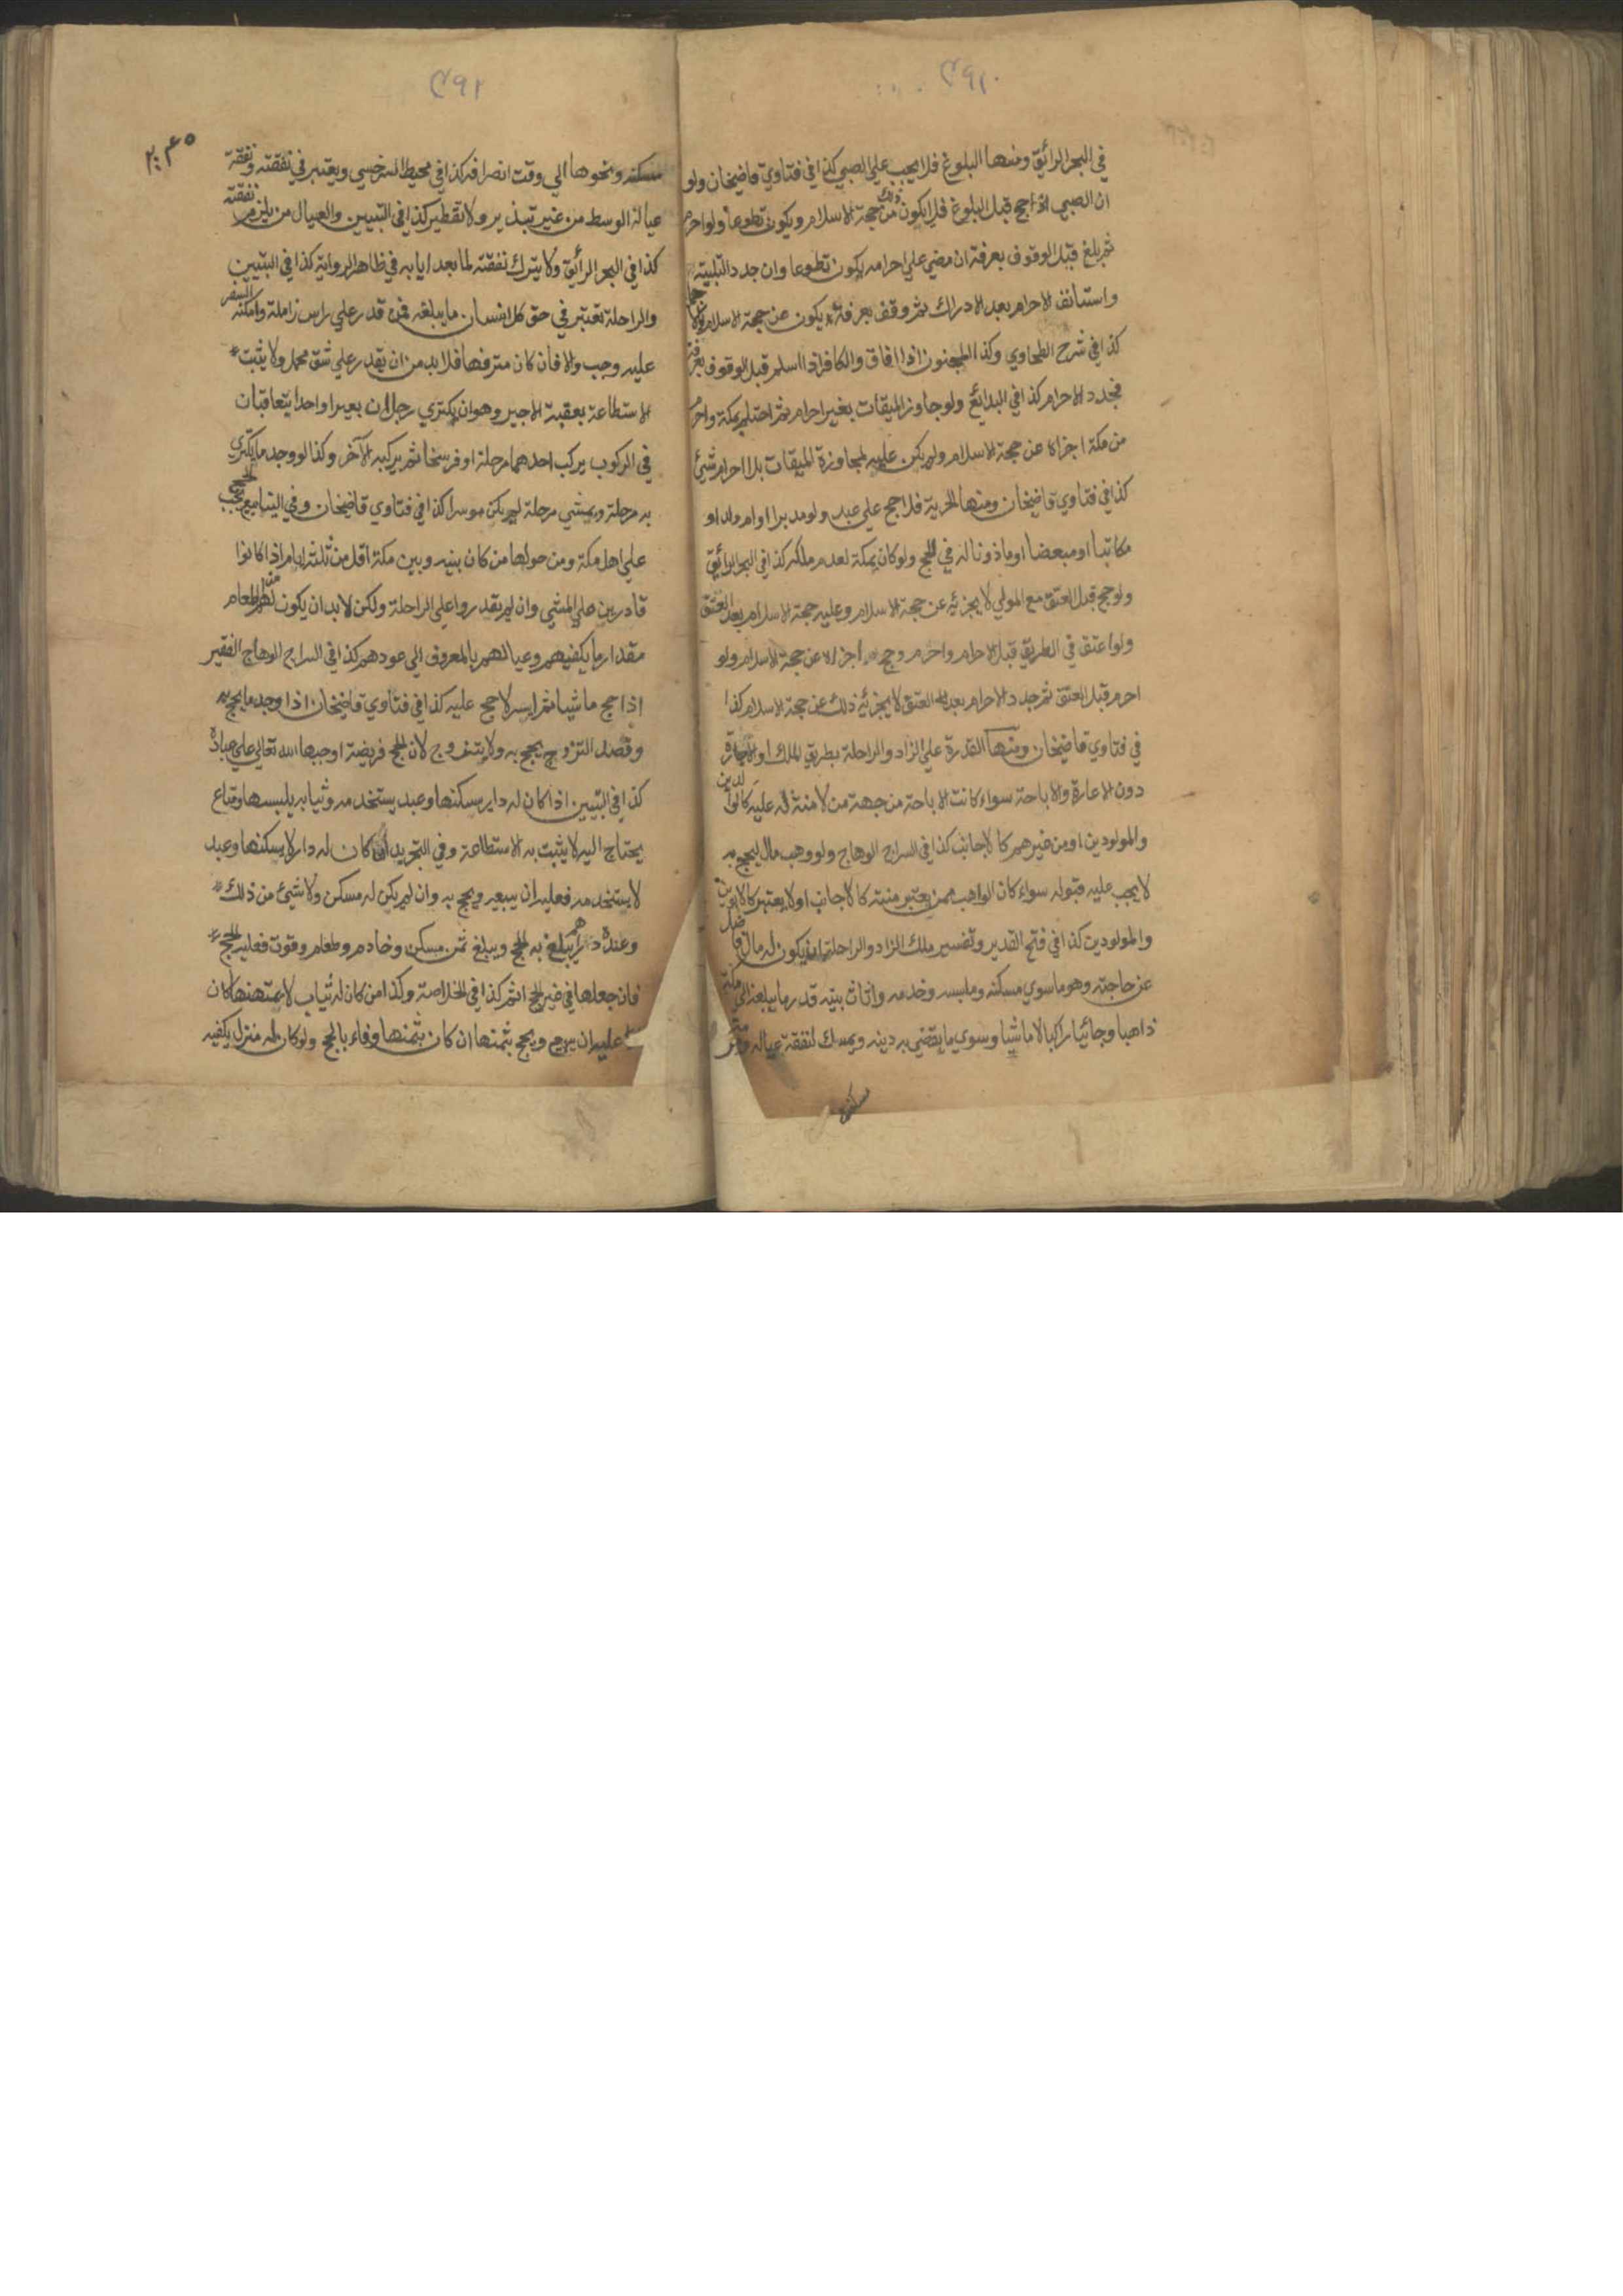 في البحر الرائق ومنها البلوغ فلا يجب علي الصبي كذا في فتاوي قاضيخان ولو
ان الصبي اذا حج قبل البلوغ فلا يكون ذلك من حجة الاسلام ويكون تطوعا ولو احرم
ثم بلغ قبل الوقوف بعرفة ان مضي علي احرامه يكون تطوعا وان جدد التلبية
واستانف الاحرام بعد الادراك ثم وقف بعرفة يكون عن حجة الاسلام
كذا في شرح الطحاوي وكذا المجنون اذا افاق والكافر اذا اسلم قبل الوقوف بعرفة
فجدد الاحرام كذا في البدائع ولو جاوز الميقات بغير احرام ثم احتلم بمكة واحرم
من مكة اجزاه عن حجة الاسلام ولم يكن عليه لمجاوزة الميقات بلا احرام شيئ
كذا في فتاوي قاضيخان ومنها الحرية فلا حج علي عبد ولو مدبرا او ام ولد او
مكاتبا او مبعضا او ماذونا له في الحج ولو كان بمكة لعدم ملكه كذا في البحر الرائق
ولو حج قبل العتق مع المولي لا يجزئه عن حجة الاسلام وعليه حجة الاسلام بعد العتق
ولو اعتق في الطريق قبل الاحرام واحرم وحج اجزاه عن حجة الاسلام ولو
احرم قبل العتق ثم جدد الاحرام بعد العتق لا يجزئه ذلك عن حجة الاسلام كذا
في فتاوي قاضيخان ومنها القدرة علي الزاد والراحلة بطريق الملك او الاجارة
دون الاعارة والاباحة سواء كانت الاباحة من جهة من لا منة له عليه كالوالدين
والمولودين او من غيرهم كالاجانب كذا في السراج الوهاج ولو وهب مال ليحج به
لا يجب عليه قبوله سواء كان الواهب ممن يعتبر منته كالاجانب او لا يعتبر كالابوين
والمولودين كذا في فتح القدير وتفسير ملك الزاد والراحلة ان يكون له مال فاضل
عن حاجته وهو ما سوي مسكنه وملبسه وخدمه واثاث بيته قدر ما يبلغه الي مكة
ذاهبا وجائيا راكبا لا ماشيا وسوي ما يقضي به دينه ويمسك لنفقة عياله ومرمة
مسكنه
مسكنه ونحوها الي وقت انصرافه كذا في محيط السرخسي ويعتبر في نفقته ونفقة
عياله الوسط من غير تبذير ولا تقطير كذا في التبيين والعيال من يلزمه نفقته
كذا في البحر الرائق ولا يترك نفقته لما بعد ايابه في ظاهر الرواية كذا في التبيين
والراحلة تعتبر في حق كل انسان ما يبلغه فمن قدر علي راس زاملة وامكنه السفر
عليه وجب والا فان كان مترفها فلا بد من ان يقدر علي شق محمل ولا يثبت
الاستطاعة بعقبة الاجير وهو ان يكتري رجلان بعيرا واحدا يتعاقبان
في الركوب يركب احدهما مرحلة او فرسخا ثم يركبه الآخر وكذا لو وجد ما يكتري
به مرحلة ويمشي مرحلة لم يكن موسرا كذا في فتاوي قاضيخان وفي الينابيع يجب الحج
علي اهل مكة ومن حولها من كان بينه وبين مكة اقل من ثلثة ايام اذا كانوا
قادرين علي المشي وان لم يقدروا علي الراحلة ولكن لا بد ان يكون لهم من الطعام
مقدار ما يكفيهم وعيالهم بالمعروف الي عودهم كذا في السراج الوهاج الفقير
اذا حج ماشيا ثم ايسر لا حج عليه كذا في فتاوي قاضيخان اذا وجد ما يحج به
وقصد التزوج يحج به ولا يتزوج لان الحج فريضة اوجبها الله تعالي علي عباده
كذا في التبيين اذا كان له دار يسكنها وعبد يستخدمه وثيابه يلبسها ومتاع
يحتاج اليه لا يثبت به الاستطاعة وفي التجريد ان كان له دار لا يسكنها وعبد
لا يستخدمه فعليه ان يبيعه ويحج به وان لم يكن له مسكن ولا شيئ من ذلك
وعنده دراهم يبلغ به الحج ويبلغ ثمن مسكن وخادم وطعام وقوت فعليه الحج
فان جعلها في غير الحج اثم كذا في الخلاصة وكذا من كان له ثياب لا يمتهنها كان
عليه ان يبيع ويحج بثمنها ان كان بثمنها وفاء بالحج ولو كان له منزل يكفيه